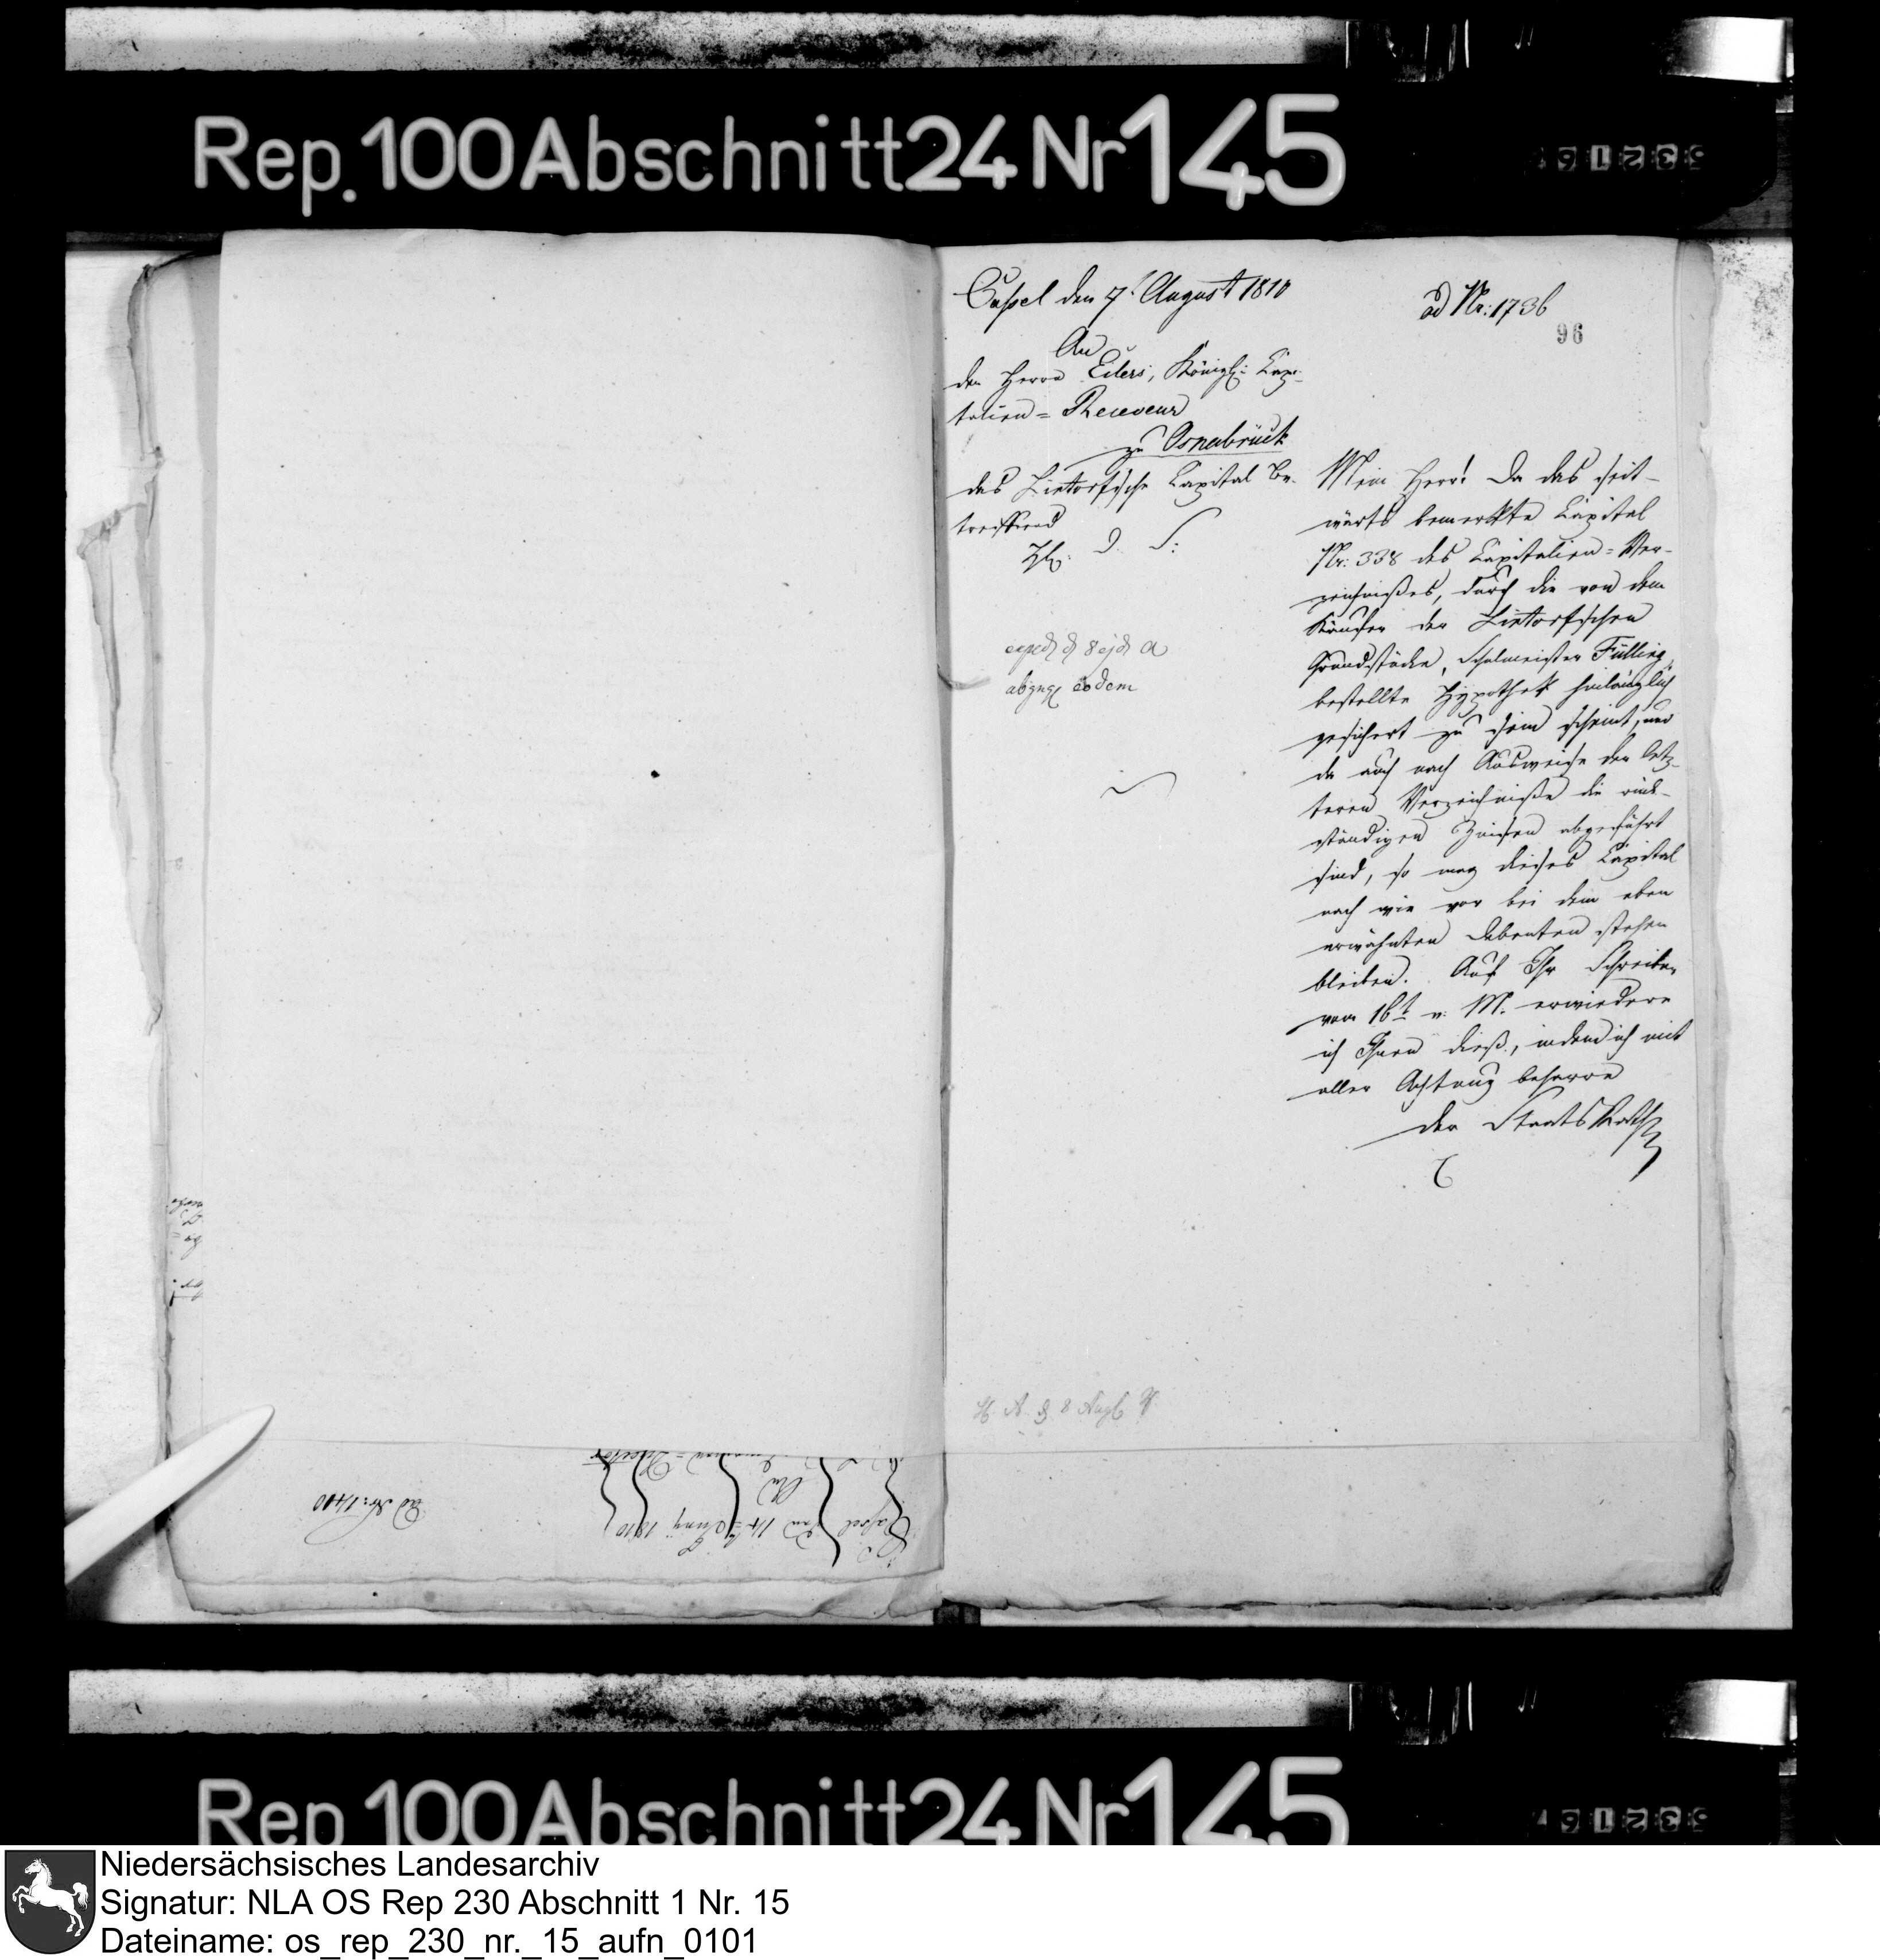 Rep. 100 Abschnitt 24 Nr 145
Cassel den 7t August 1810
ad Nr: 1736
96
An
den Herrn Eilers, Königl: Capi-
talien=Receveur
zu Osnabrück
das Lintorfsche Capital be-
treffend
expd d 8 ejd a
abgeg eodem
Mein Herr! Da das seit-
wärts bemerkte Capital
Nr: 338 des Capitalien=Ver-
zeichnißes, durch die von dem
Käufer der Lintorfschen
Grundstücke, Schulmeister Fülling,
bestellte Hypothek hinlänglich
gesichert zu sein scheint, und
da auch nach Ausweise der letz-
teren Verzeichniße die rück-
ständigen Zinsen abgeführt
sind, so mag dieses Capital
nach wie vor bei dem eben
erwähnten Debenten stehen
bleiben. Auf Ihr Schreiben
vom 16t v. M. erwiedere
ich Ihnen dieß, indem ich mit
aller Achtung beharre
Der StaatsRath
8 Augt
Cassel den 14t Juny 1810
ad Nr: 1400
An
Domainen=Director
Rep 100 Abschnitt 24 Nr 145
Niedersächsisches Landesarchiv
Signatur: NLA OS Rep 230 Abschnitt 1 Nr. 15
Dateiname: os_rep_230_nr._15_aufn_0101